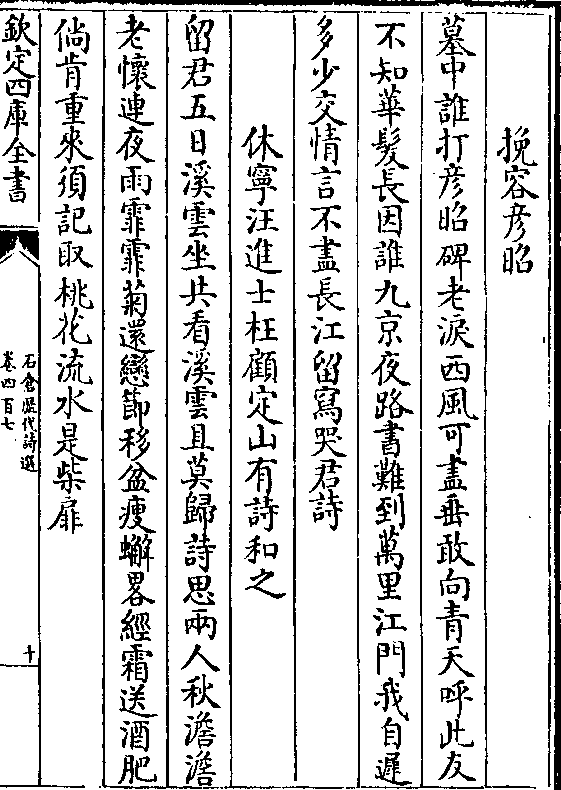 挽容彦昭
墓中誰打彦昭碑老淚西風可盡垂敢向青天呼此友
不知華髮長因誰九京夜路書難到萬里江門我自遲
多少交情言不盡長江留寫哭君詩
休寧汪進士枉顧定山有詩和之
留君五日溪雲坐共看溪雲且莫歸詩思兩人秋澹澹
老懷連夜雨霏霏菊還戀節移盆瘦蠏畧經霜送酒肥
倘肯重來須記取桃花流水是柴扉
欽定四庫全書
石倉歴代詩選
卷四百七
十